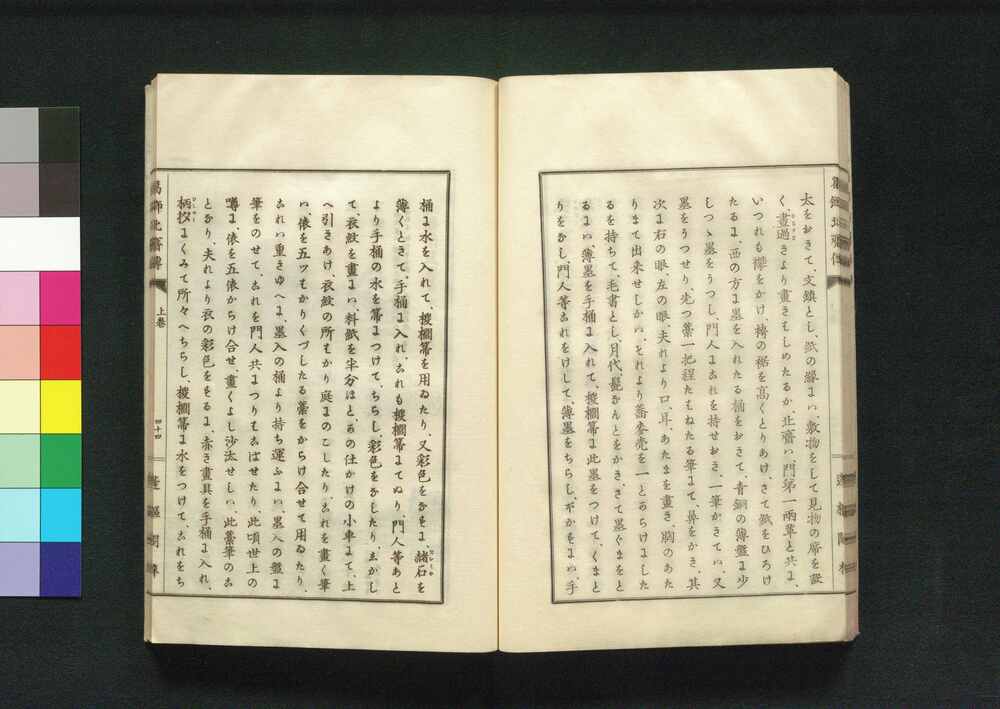 太をおきて、文鎮とし、紙の縁には、敷物をして見物の席を設
く、畫過きより畫きはじめたるか、北齋ハ、門第一兩輩と共に、
いつれも襷をかけ、袴の裾を高くとりあけ、さて紙をひろけ
たるに、西の方に墨を入れたる桶をおきて、青銅の薄盤に少
しつゝ墨をうつし、門人にこれを持せおき、一筆かきてハ、又
墨をうつせり、先つ藁一把程たはねたる筆にて鼻をかき、其
次に右の眼、左の眼、夫れより口、耳、あたまを畫き、胸のあた
りまて出来せしかハ、それより蕎麥売を一とからけにした
るを持ちて、毛書とし、月代髭なんとをかき、さて墨くまをと
るにハ、薄墨を手桶に入れて、椶櫚箒に此墨をつけて、くまと
りをなし、門人等これをけして、薄墨をちらし、ボかをにハ、手
桶に水を入れて、椶櫚箒を用ゐたり、又彩色をなをに、緒石を
薄くときて、手桶に入れ、これも椶櫚箒にてぬり、門人等あと
より手桶の水を箒につけて、ちらし、彩色をなしたり、ゑかし
て、衣紋を畫にハ、料紙を半分ほとこの仕かけの小車にて、上
へ引きあけ、衣紋の所はかり庭にのこしたり、これを畫く筆
ハ、俵を五ツはかりくづしたる藁をからけ合せて用ゐたり、
これハ重きゆへに、墨入の桶より持ち運ふにハ、墨入の盤に
筆をのせて、これを門人共につりてはこはせたり、此頃世上の
噂に、俵を五俵からけ合せ、畫くよし沙汰せしハ、此藁筆のこ
となり、夫れより衣の彩色をなるに、赤き畫具を手桶に入れ、
柄杓にくみて所々へちらし、椶櫚箒に水をつけて、これをち
上卷
四十四